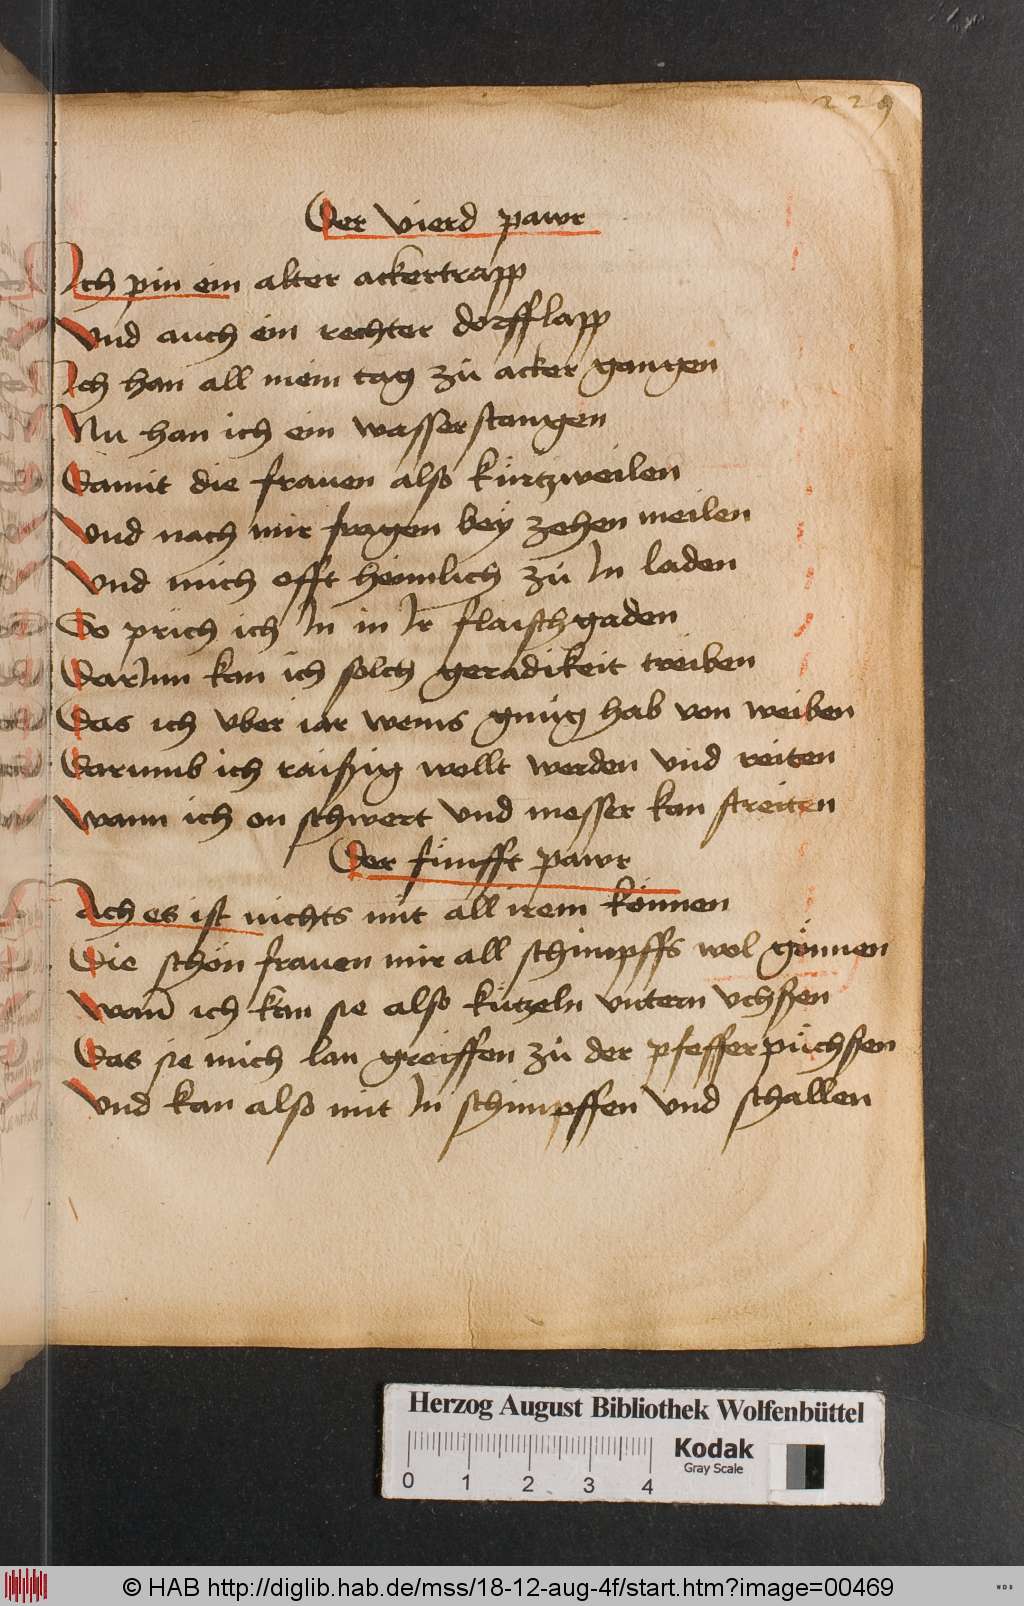 229
Der vierd pawr
Ich pin ein alter ackertrapp
Vnd auch ein rechter dorfflapp
Ich han all mein tag zů acker gangen
Nu han ich ein wasserstangen
Damit die frauen also kurtzweilen
Vnd nach mir fragen bey zehen meilen
Vnd mich offt heimlich zů In laden
So prich ich In in Ir flaischgaden
DarInn kan ich solch geradikeit treiben
Das ich vber iar weins gnůg hab von weiben
Darumb ich raißig wollt werden vnd reiten
Wann ich on schwert vnd messer kan streiten
Der fünfft pawr
Ach es ist nichts mit all irem können
Die schön frauen mir all schimpffs wol gönnen
Wañ ich kan sie also kützeln vntern vchßen
Das sie mich lan greiffen zů der pfefferpüchßen
Vnd kan also mit In schimpffen vnd schallen
Herzog August Bibliothek Wolfenbüttel
0 1 2 3 4
Kodak
Gray Scale
© HAB http://diglib.hab.de/mss/18-12-aug-4f/start.htm?image=00469